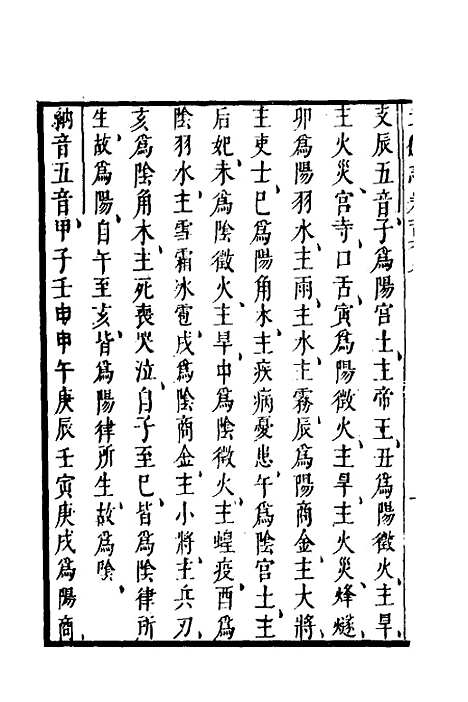 支辰五音子爲陽宫土主帝王丑爲陽徵火主旱
主火災宫寺口舌寅爲陽徵火主旱主火災烽燧
卯爲陽羽水主雨主水主霧辰爲陽商金主大將
主吏士巳爲陽角木主疾病憂患午爲陰宫土主
后妃未爲陰徵火主旱申爲陰徵火主蝗疫酉爲
陰羽水主雪霜冰雹戌爲陰商金主小將主兵刃
亥爲陰角木主死喪哭泣自子至巳皆爲陰律所
生故爲陽自午至亥皆爲陽律所生故爲陰
納音五音甲子壬申甲午庚辰壬寅庚戌爲陽商